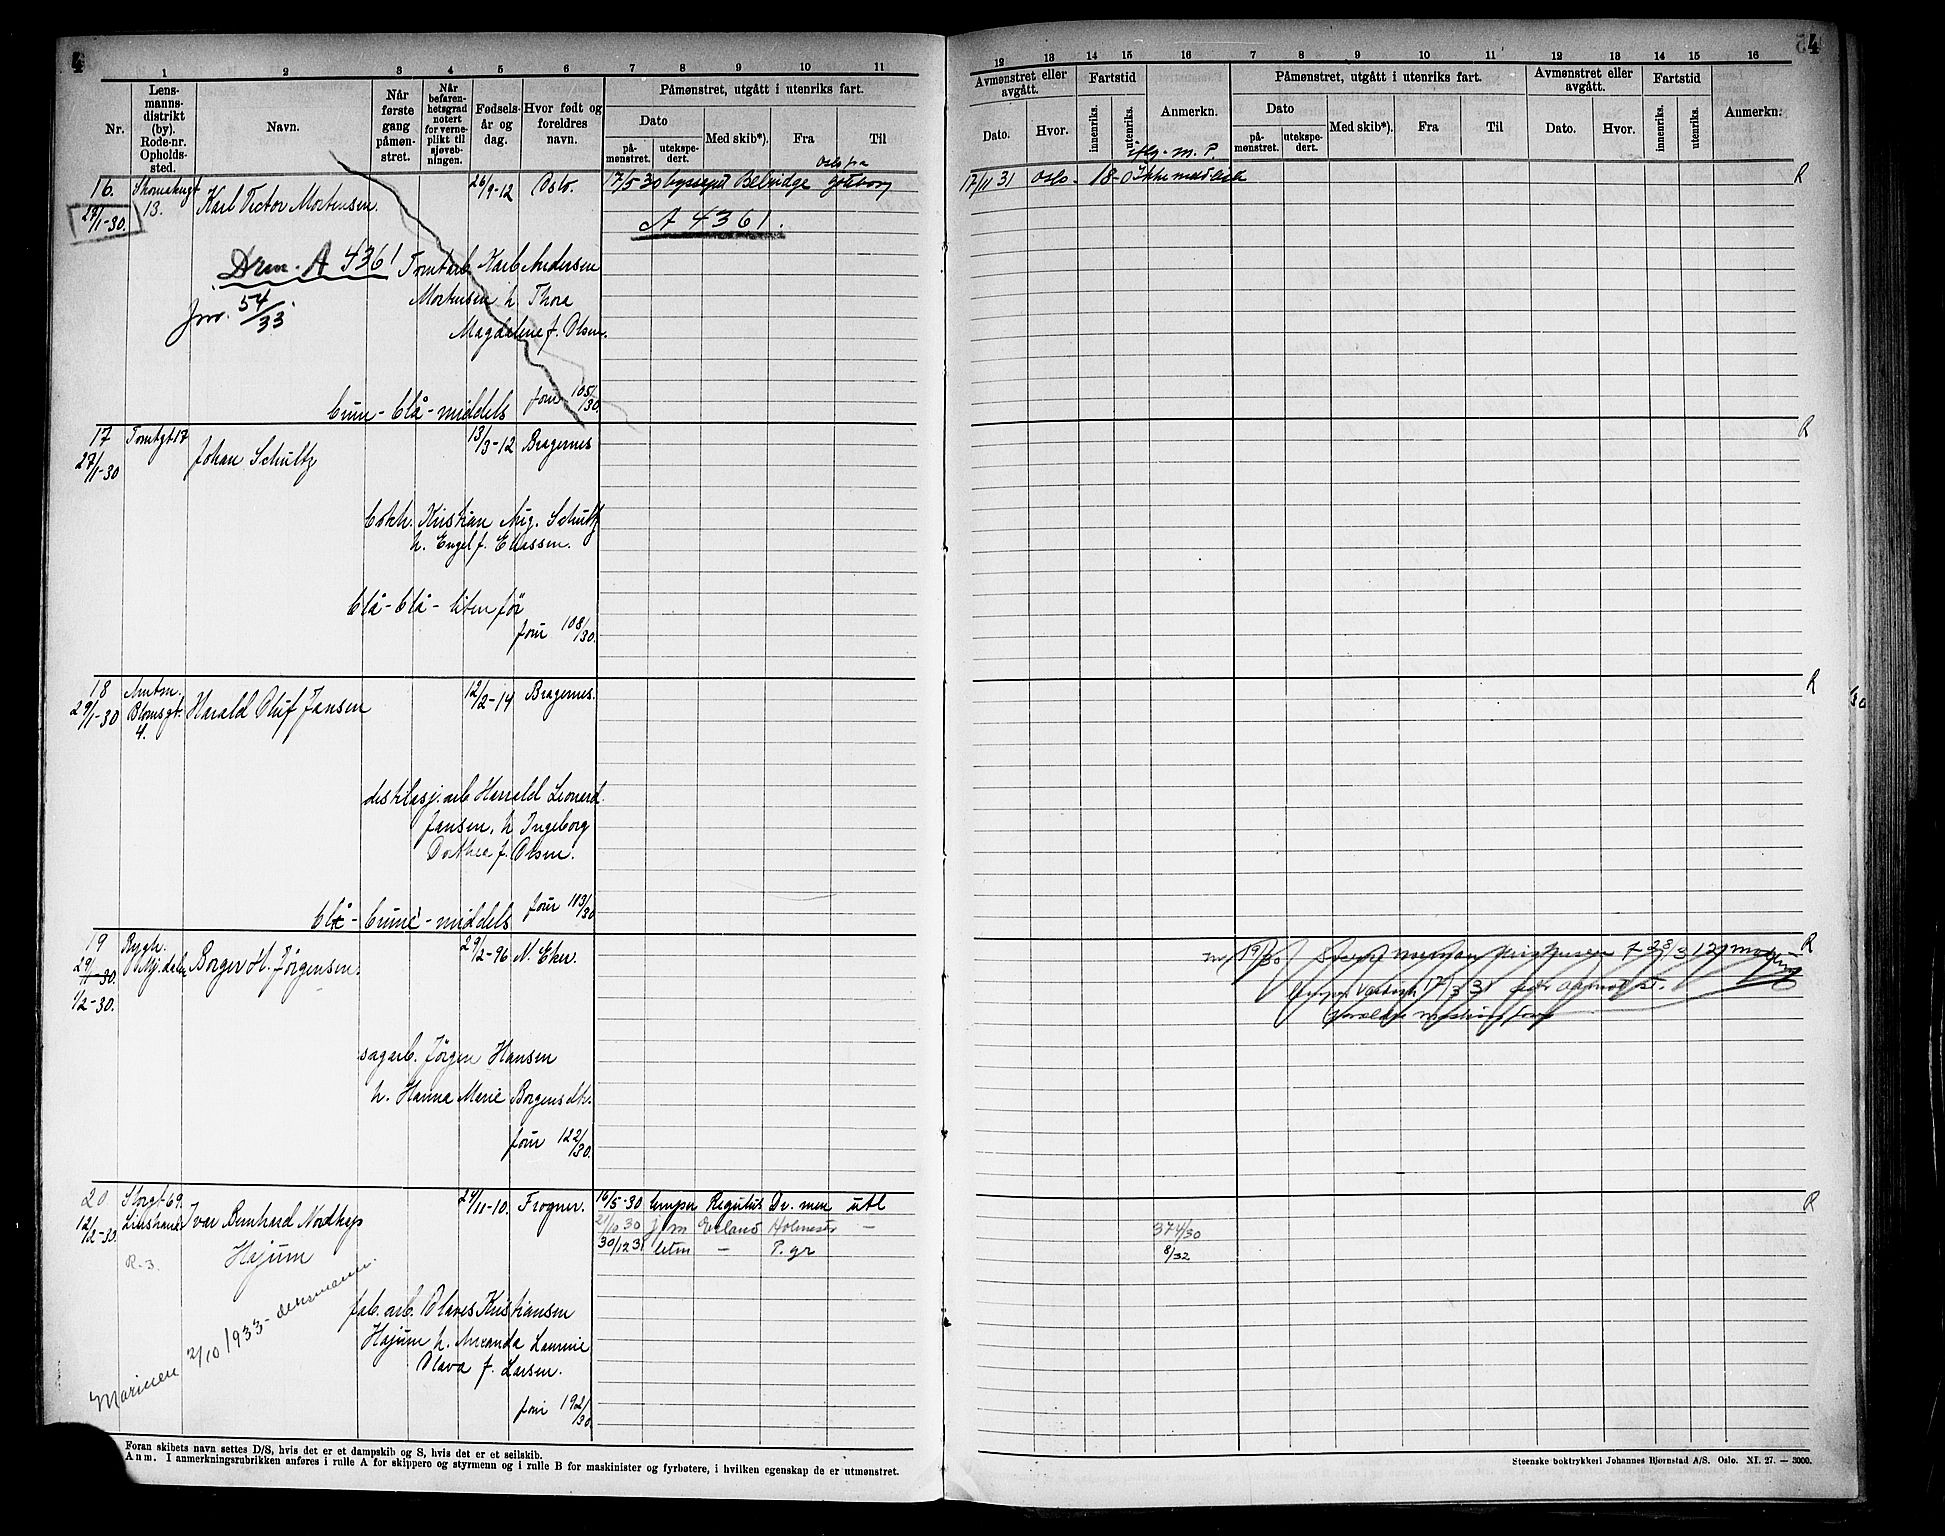 4
1 2 3 4 5 6 7 8 9 10 11
Nr.
Lens-
manns-
distrikt
(by).
Rode-nr.
Opholds-
sted.
Navn.
Når
første
gang
påmøn-
stret.
Når
befaren-
hetsgrad
notert
for verne-
plikt til
sjøveb-
ningen.
Fødsels-
år og
dag.
Hvor født og
foreldres
navn.
Påmønstret, utgått i utenriks fart.
Dato
på-
mønstret.
utekspe-
dert.
Med skib*).
Fra
Til
16.
28/1-30.
13.
Karl Victor Mortensen.
26/9-12
Oslo.
17/5 30
Belridge
Oslo fra
Gøteborg
A 4361.
Drm. A 4361
Jnr. 54/33
Tomtarb. Karl Andersen
Mortensen h. Thora
Magdalene f. Olsen.
brun - blå - middels
Jour 105/30.
17
27/1-30
Tomtgt 17
Johan Schultz
13/3-12
Bragernes
Kristian Aug. Schultz
h. Engel f. Eliassen.
blå - blå - liten før
Jour 108/30.
18
29/1-30
Amtm.
Blomsgt.
4.
Harald Oluf Jansen
12/2-14
Bragernes.
destilasj. arb Harrald Leonard
Jansen, h Ingeborg
Dorthea f. Olsen.
blå - brune - middels
Jour 113/30
19
29/1-30.
1/2-30.
Borger H. Jørgensen.
29/2-96
N. Eker.
sagarb. Jørgen Hansen
h. Hanna Marie Borgensdtr.
Jour 122/30.
20
12/2-30.
Storgt 69.
R. 3.
Ivar Bernhard Nordhap
Hajum
24/11-10.
Frogner.
16/5-30
Regulus
Dr. men
utl
21/10 30
j m
-
30/12 31
letm
-
P. gr
fab. arb. Olaves Kristiansen
Hajum h. Amanda Laurine
Olava f. Larsen.
Jour 192/30.
Marinen 2/10 1933-
Foran skibets navn settes D/S, hvis det er et dampskib og S, hvis det er et seilskib.
Anm. I anmerkningsrubrikken anføres i rulle A for skippero og styrmenn og i rulle B for maskinister og fyrbøtere, i hvilken egenskap de er utmønstret.
4
12 13 14 15 16 7 8 9 10 11 12 13 14 15 16
Avmønstret eller
avgått.
Dato.
Hvor.
Fartstid
innenriks.
utenriks.
Anmerkn.
Påmønstret, utgått i utenriks fart.
Dato
på-
mønstret.
utekspe-
dert.
Med skib*).
Fra
Til
Avmønstret eller
avgått.
Dato.
Hvor.
Fartstid
innenriks.
utenriks.
Anmerkn:
17/11 31
Oslo.
18-0
R
R
R
R
R
374/30
8/32
Steenske boktrykkeri Johannes Bjørnstad A/S. Oslo. XI. 27. — 3000.